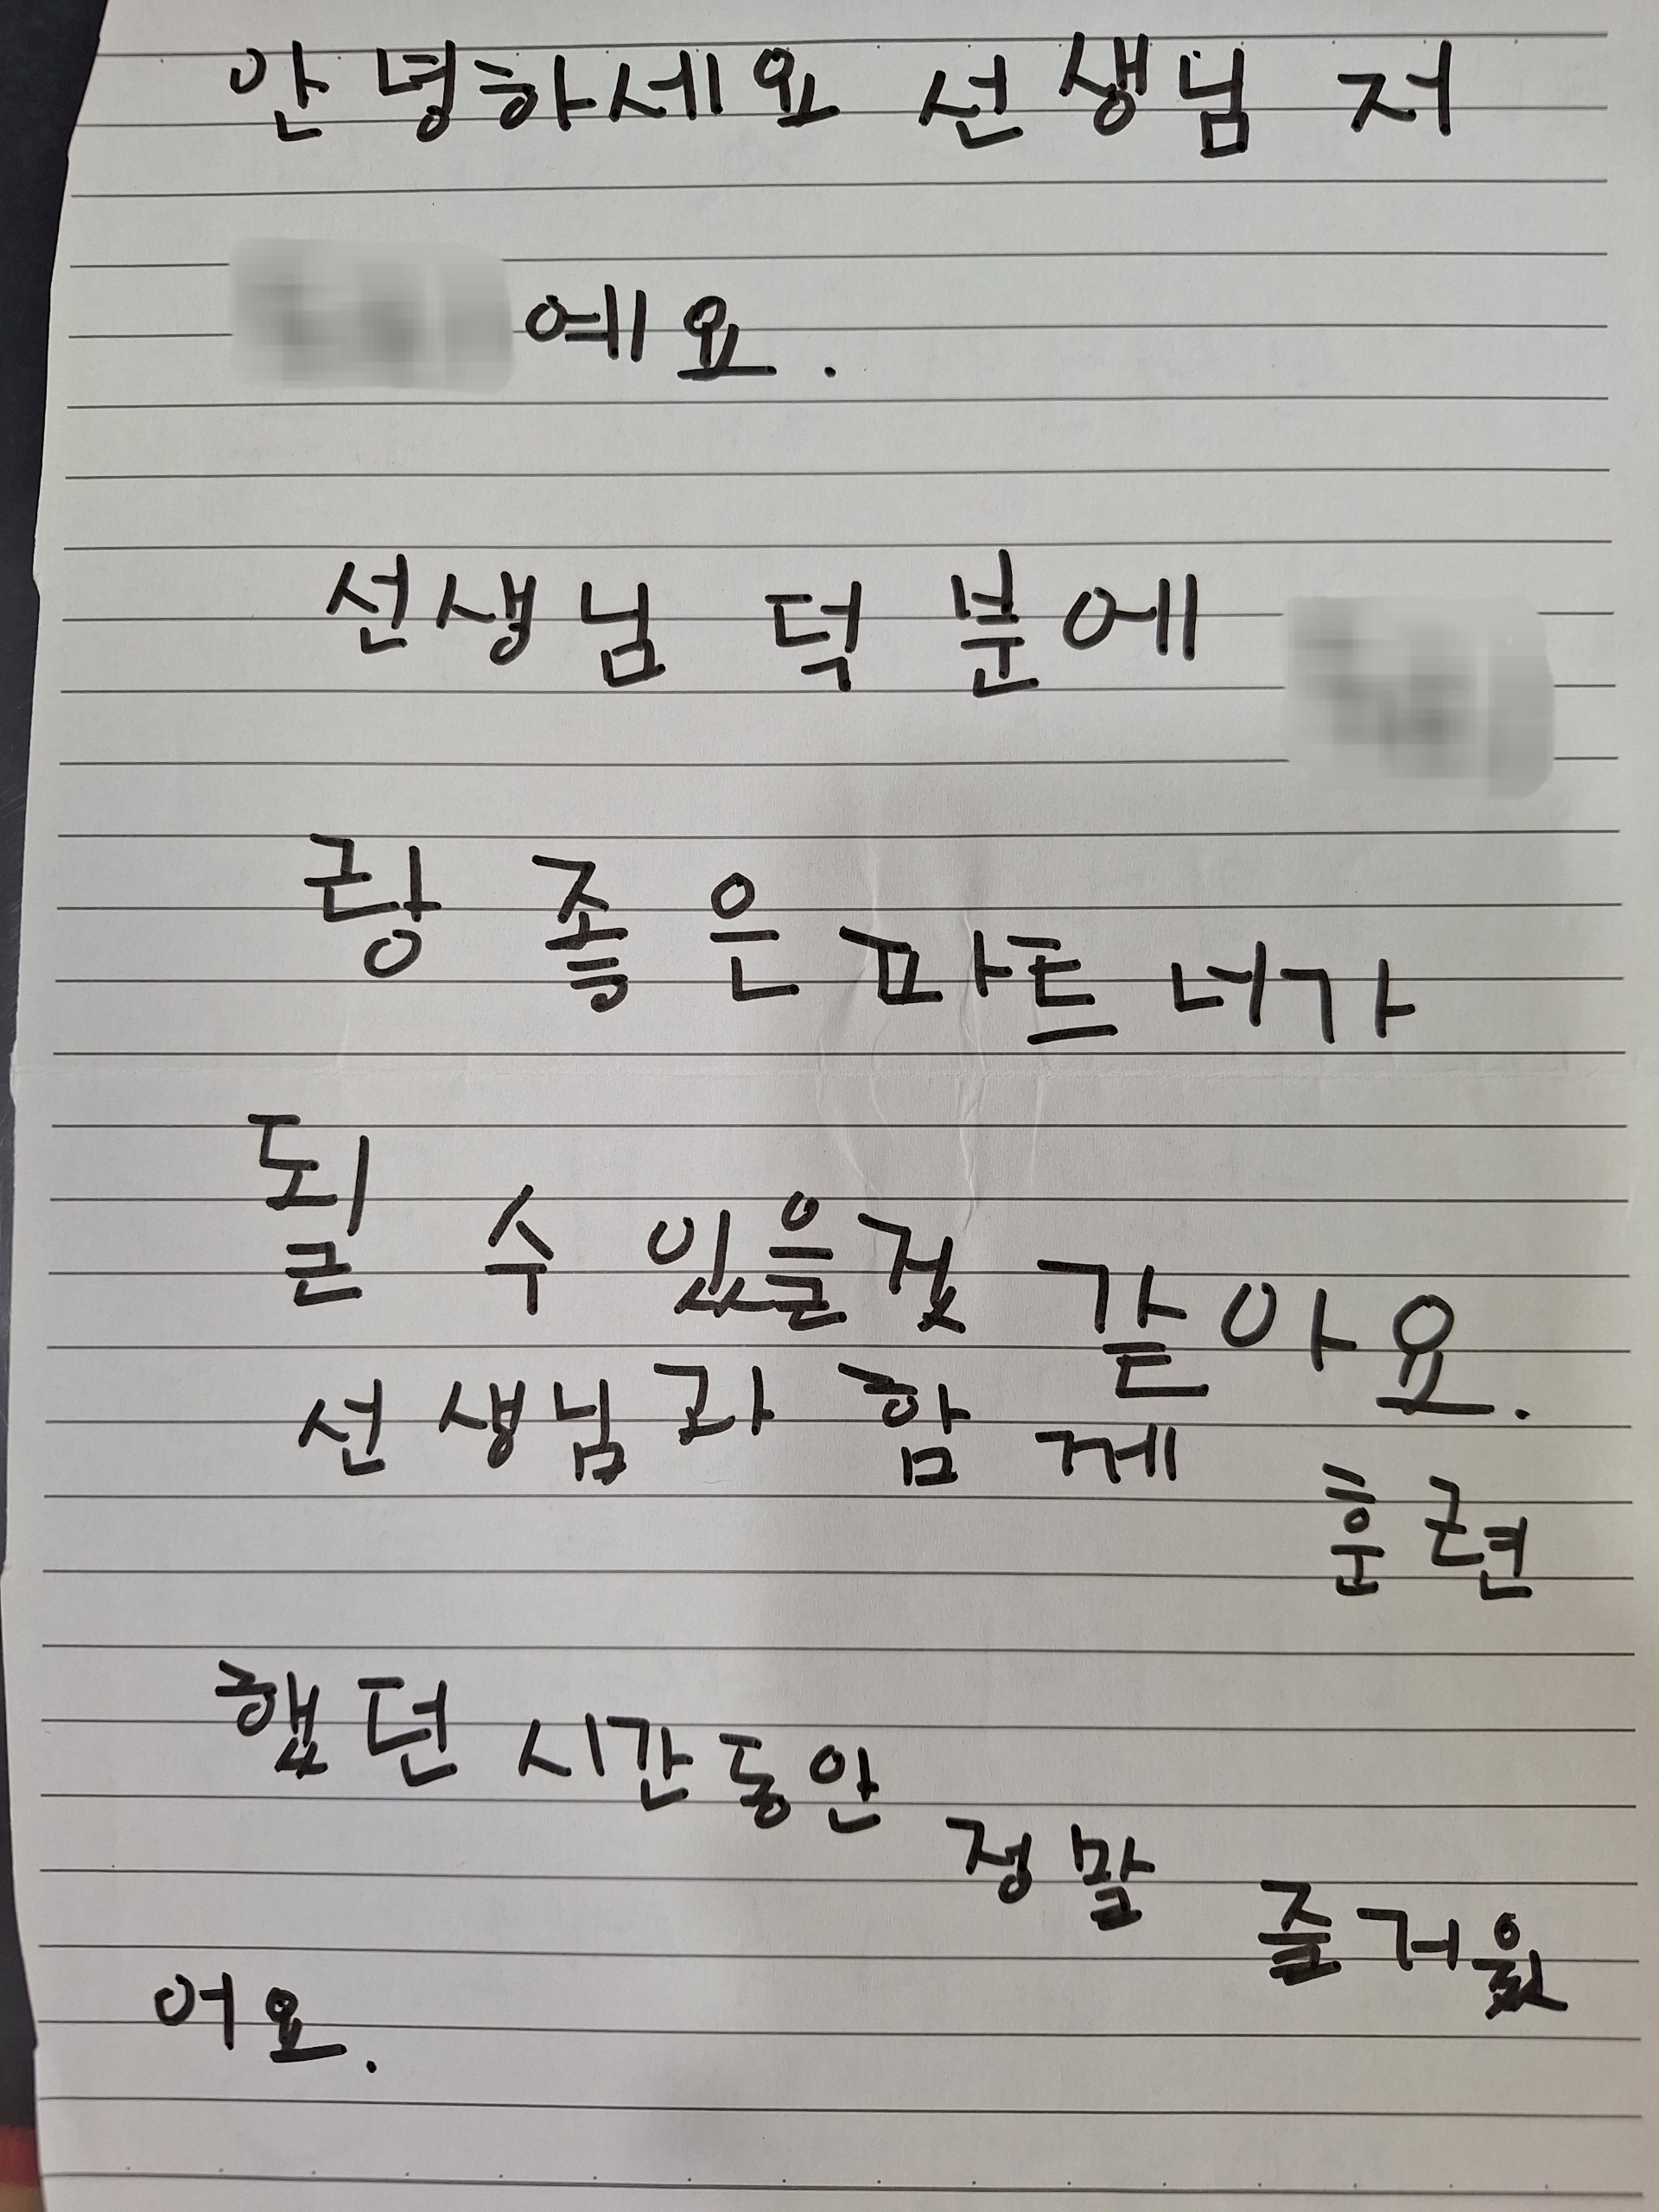 안녕하세요 선생님 저
예요.
선생님 덕분에
랑 좋은 파트너가
될 수 있을것 같아요.
선생님과 함께 훈련
했던 시간동안 정말 즐거웠
어요.